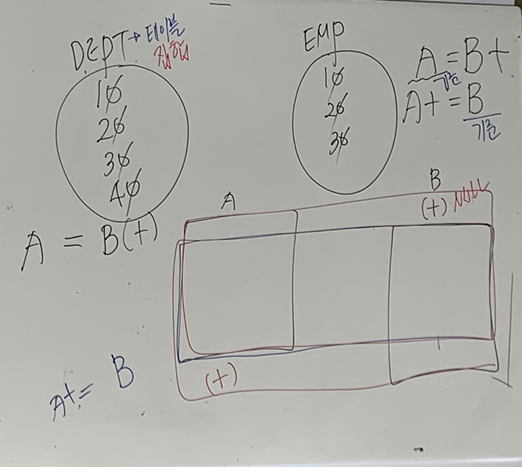 DEPT → 테이블
집합
10
20
30
40
EMP
10
20
30
A = B+
기준
A+ = B
기준
A = B(+)
A
B
(+) NULL
(+)
A+= B